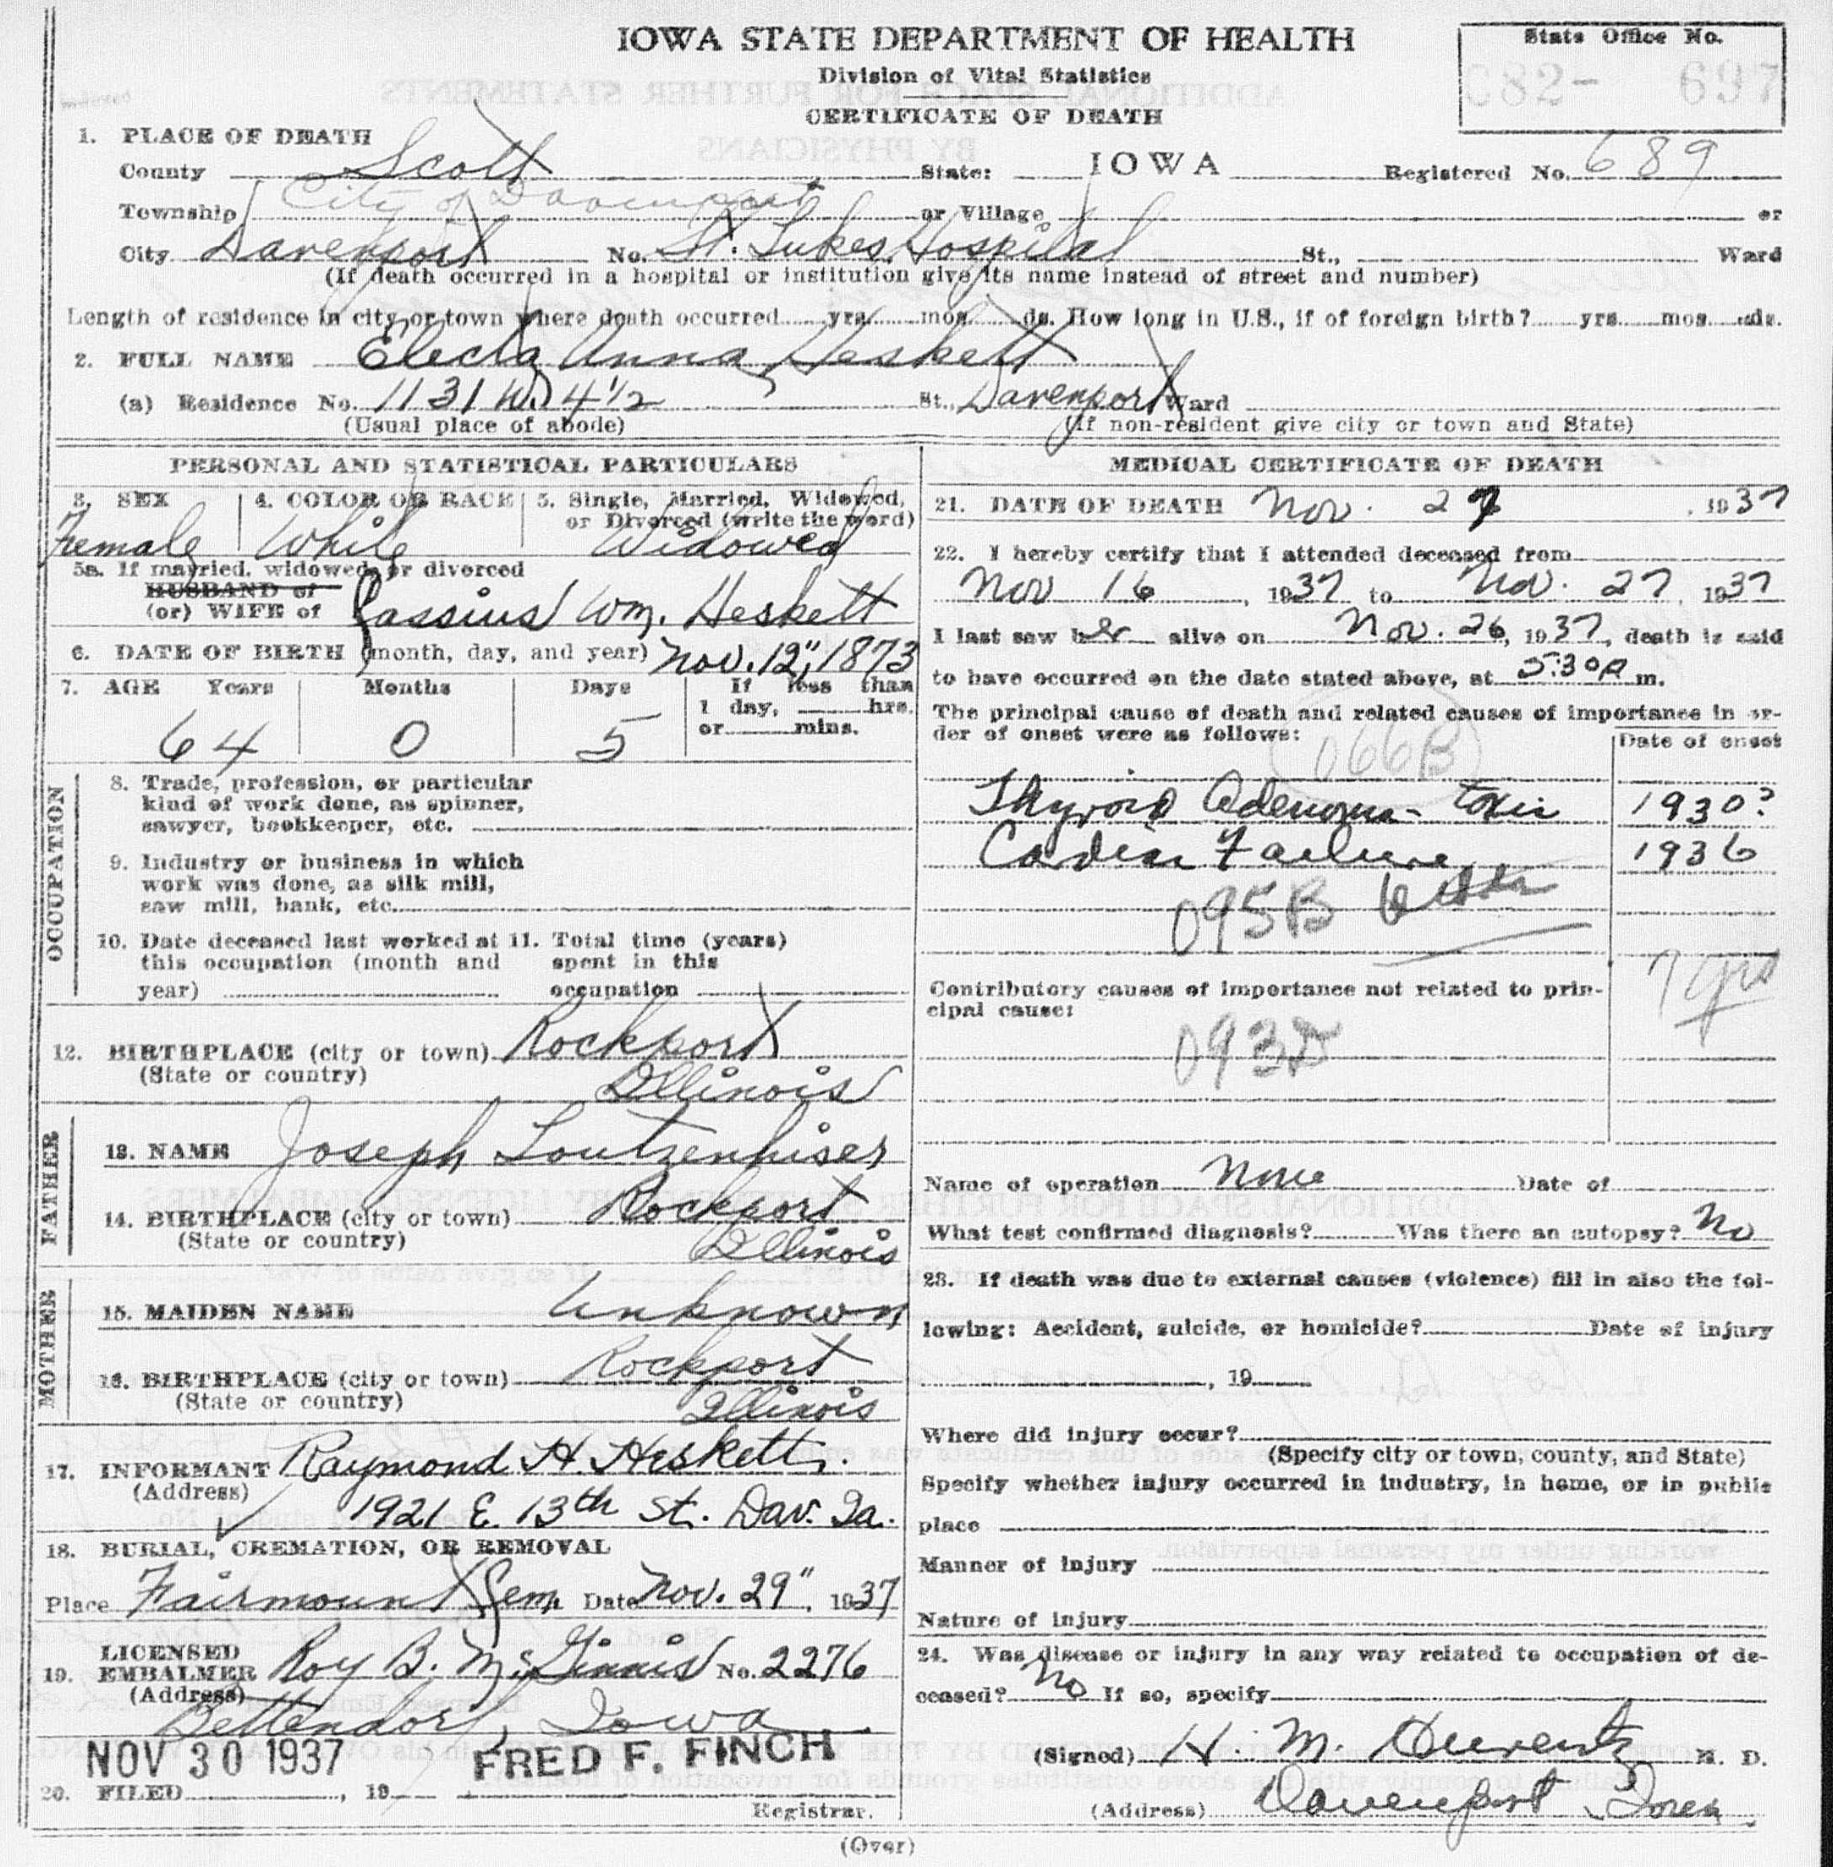 IOWA STATE DEPARTMENT OF HEALTH
Division of Vital Statistics
CERTIFICATE OF DEATH
State Office No.
082- 697
1. PLACE OF DEATH
County Scott State: IOWA Registered No. 689
City of Davenport
Township or Village or
City Davenport No. St. Lukes Hospital St., Ward
(If death occurred in a hospital or institution give its name instead of street and number)
Length of residence in city or town where death occurred yrs. mos. ds. How long in U.S., if of foreign birth? yrs. mos. ds.
2. FULL NAME Electa Anna Heskett
(a) Residence No. 1131 W. 4 1/2 St., Davenport Ward
(Usual place of abode) (If non-resident give city or town and State)
PERSONAL AND STATISTICAL PARTICULARS
3. SEX 4. COLOR OR RACE 5. Single, Married, Widowed, or Divorced (write the word)
Female White Widowed
5a. If married, widowed, or divorced
HUSBAND of
(or) WIFE of Cassius Wm. Heskett
6. DATE OF BIRTH (month, day, and year) Nov. 12", 1873
7. AGE Years Months Days If less than 1 day, hrs. or mins.
64 0 5
OCCUPATION
8. Trade, profession, or particular
kind of work done, as spinner,
sawyer, bookkeeper, etc.
9. Industry or business in which
work was done, as silk mill,
saw mill, bank, etc.
10. Date deceased last worked at 11. Total time (years)
this occupation (month and spent in this
year) occupation
12. BIRTHPLACE (city or town) Rockport
(State or country) Illinois
FATHER
13. NAME Joseph Loutzenhiser
14. BIRTHPLACE (city or town) Rockport
(State or country) Illinois
MOTHER
15. MAIDEN NAME Unknown
16. BIRTHPLACE (city or town) Rockport
(State or country) Illinois
17. INFORMANT Raymond H. Heskett.
(Address) 1921 E. 13th St. Dav. Ia.
18. BURIAL, CREMATION, OR REMOVAL
Place Fairmount Cem. Date Nov. 29", 1937
19. LICENSED EMBALMER Roy B. McGinnis No. 2276
(Address) Bettendorf, Iowa.
NOV 30 1937 FRED F. FINCH
20. FILED , 19
Registrar.
MEDICAL CERTIFICATE OF DEATH
21. DATE OF DEATH Nov. 27, 1937
22. I hereby certify that I attended deceased from
Nov 16, 1937 to Nov. 27, 1937
I last saw her alive on Nov. 26, 1937, death is said
to have occurred on the date stated above, at 5:30A m.
The principal cause of death and related causes of importance in or-
der of onset were as follows: Date of onset
066B
Thyroid Adenoma - toxic 1930?
Cardiac Failure 1936
095B
7 yrs
Contributory causes of importance not related to prin-
cipal cause:
093D
Name of operation None Date of
What test confirmed diagnosis? Was there an autopsy? No
23. If death was due to external causes (violence) fill in also the fol-
lowing: Accident, suicide, or homicide? Date of injury
, 19
Where did injury occur?
(Specify city or town, county, and State)
Specify whether injury occurred in industry, in home, or in public
place
Manner of injury
Nature of injury
24. Was disease or injury in any way related to occupation of de-
ceased? No If so, specify
(Signed) H. M. M. D.
(Address) Davenport Iowa
(Over)